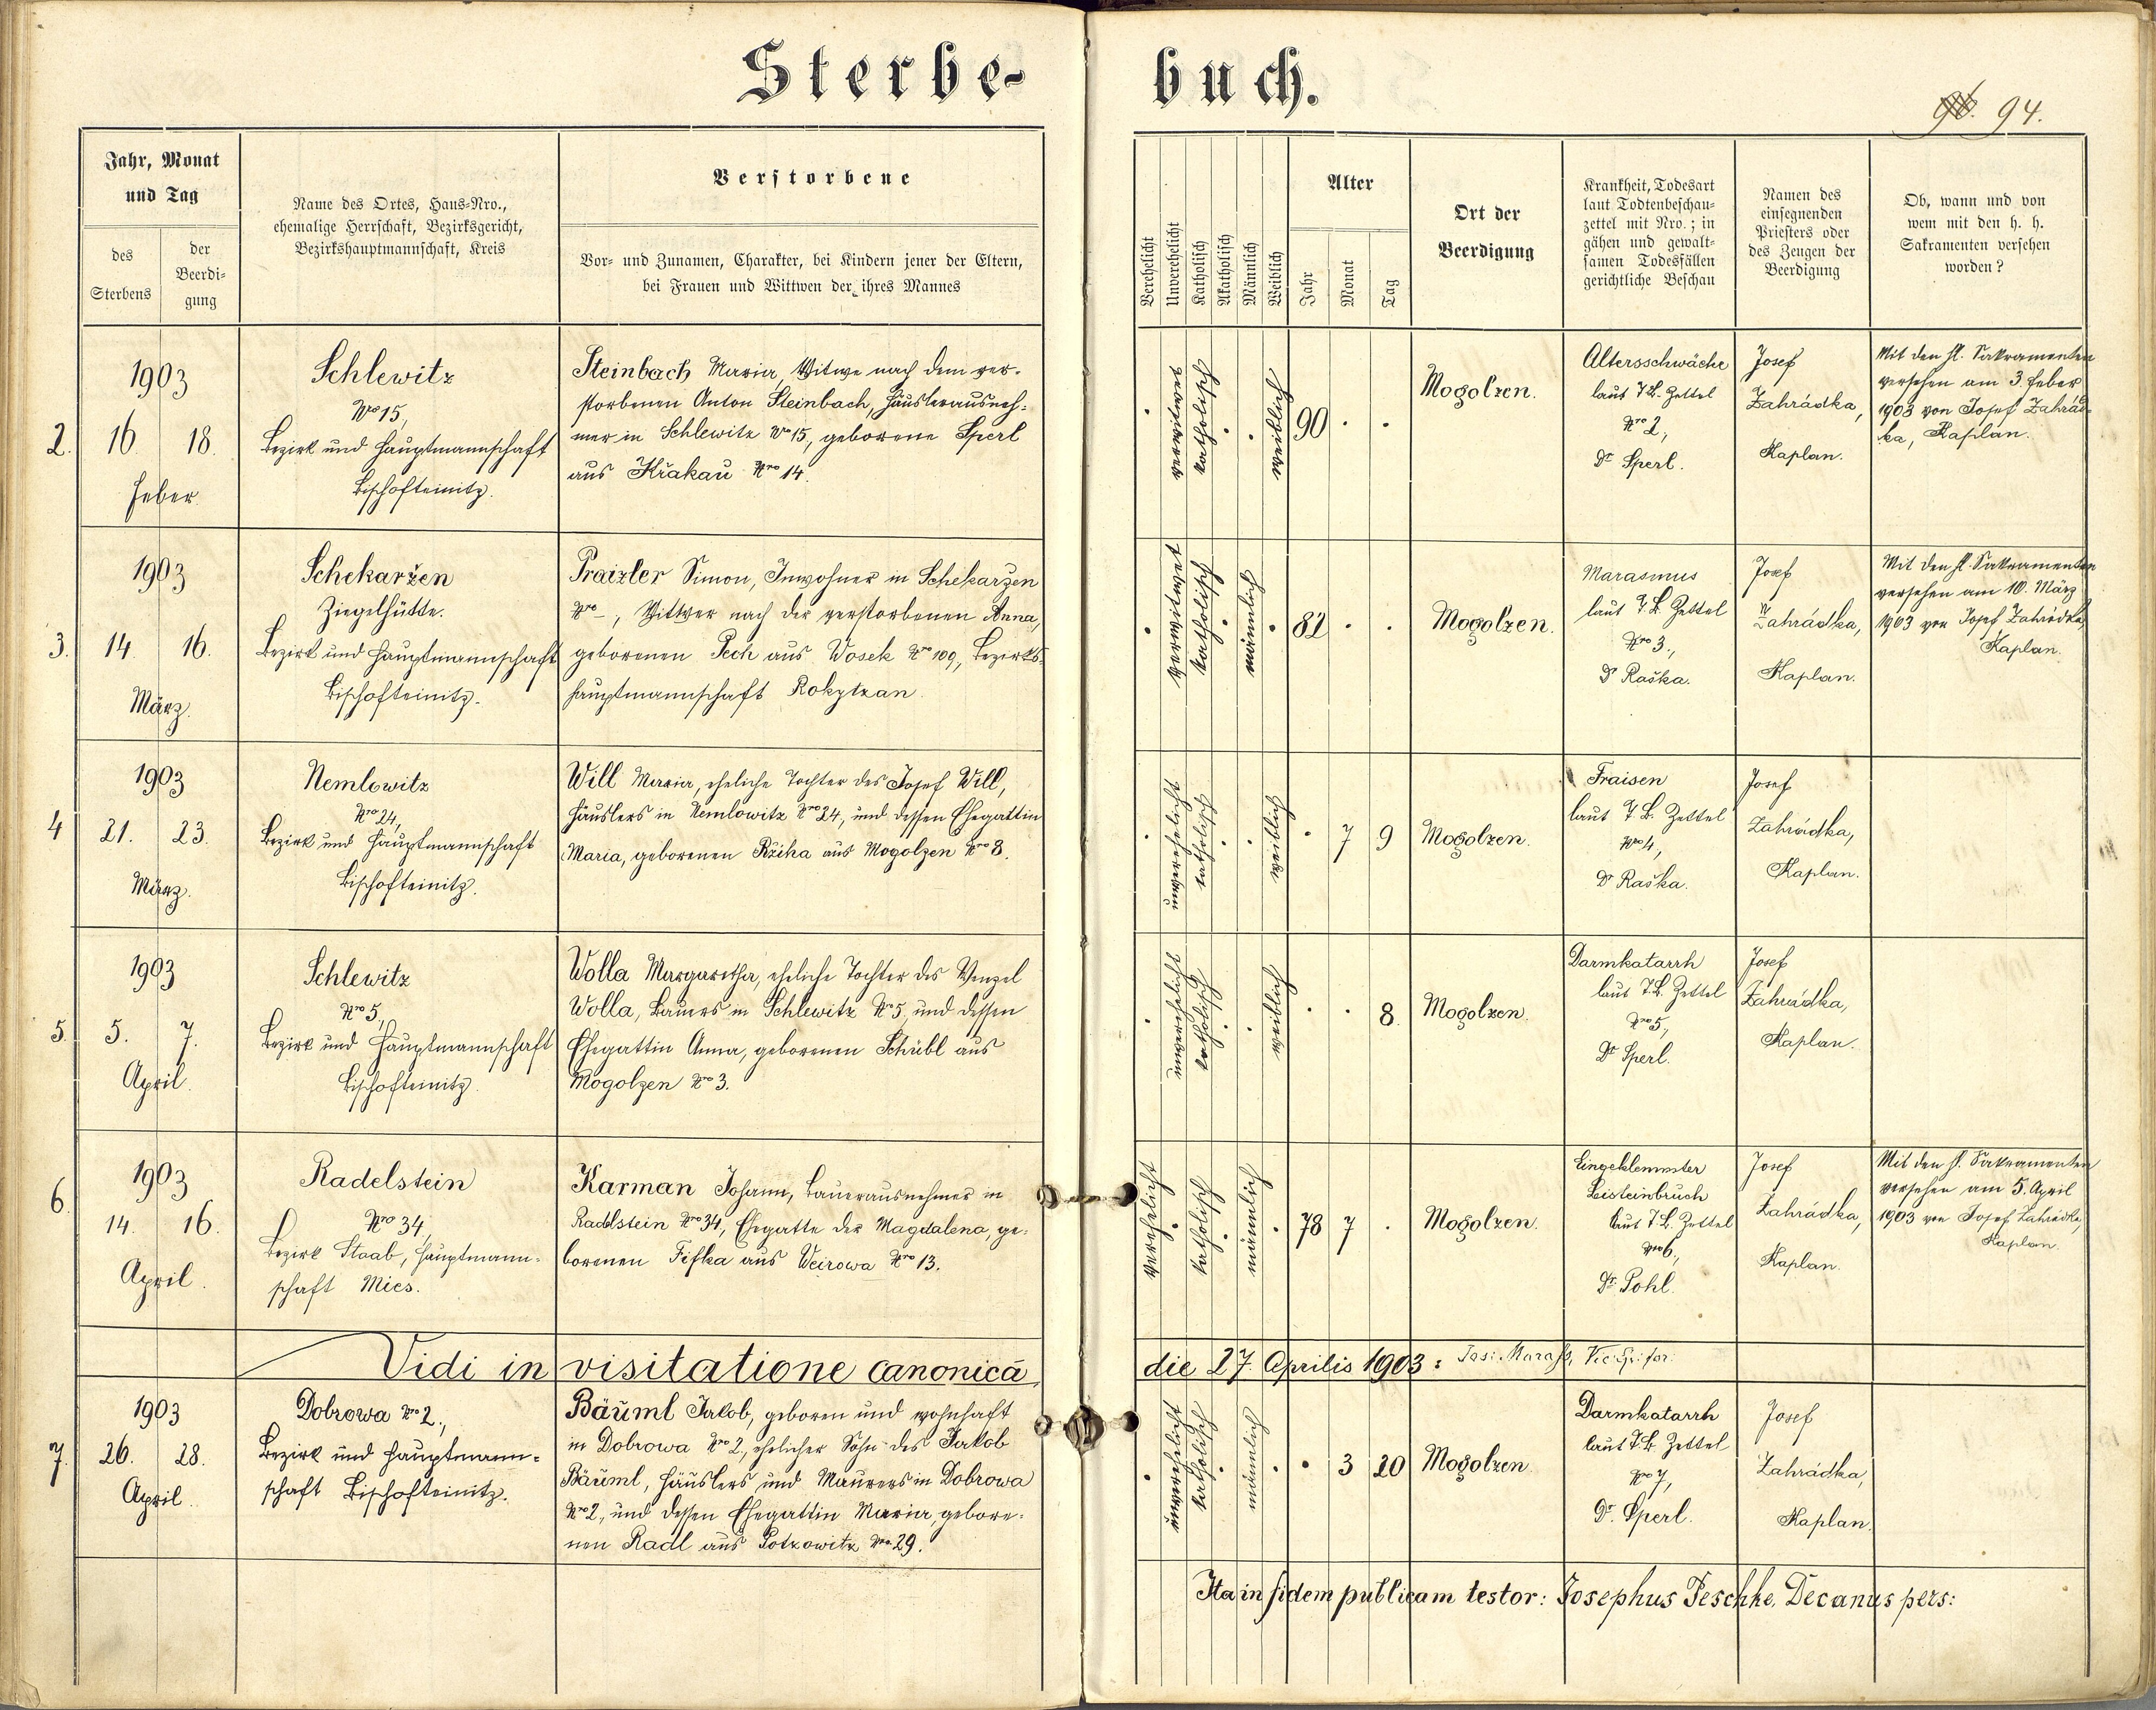 Sterbe-
buch.
96. 94.
Jahr, Monat
und Tag
des
Sterbens
der
Beerdi-
gung
Name des Ortes, Haus-Nro.,
ehemalige Herrschaft, Bezirksgericht,
Bezirkshauptmannschaft, Kreis
Verstorbene
Vor- und Zunamen, Charakter, bei Kindern jener der Eltern,
bei Frauen und Wittwen der ihres Mannes
Verehelicht
Unverehelicht
Katholisch
Akatholisch
Männlich
Weiblich
Alter
Jahr
Monat
Tag
Ort der
Beerdigung
Krankheit, Todesart
laut Todtenbeschau-
zettel mit Nro.; in
gähen und gewalt-
samen Todesfällen
gerichtliche Beschau
Namen des
einsegnenden
Priesters oder
des Zeugen der
Beerdigung
Ob, wann und von
wem mit den h. h.
Sakramenten versehen
worden?
2.
1903
16. 18.
Feber.
Schlewitz
Nro 15,
Bezirk und Hauptmannschaft
Bischofteinitz.
Steinbach Maria, Witwe nach dem ver-
storbenen Anton Steinbach, Häuslerausneh-
mer in Schlewitz Nro 15, geborene Sperl
aus Křakau Nro 14.
verwitwet
katholisch
weiblich
90 . .
Mogolzen.
Altersschwäche
laut T. B. Zettel
Nro 2,
Dr Sperl.
Josef
Zahrádka,
Kaplan.
Mit den hl. Sakramenten
versehen am 3. Feber
1903 von Josef Zahrád-
ka, Kaplan.
3.
1903
14. 16.
März.
Schekaržen
Ziegelhütte.
Bezirk und Hauptmannschaft
Bischofteinitz.
Praizler Simon, Inwohner in Schekarzen
Nro –, Wittwer nach der verstorbenen Anna,
geborenen Pech aus Wosek Nro 109, Bezirks-
hauptmannschaft Rokytzan.
verwitwet
katholisch
männlich
82 . .
Mogolzen.
Marasmus
laut T. B. Zettel
Nro 3.,
Dr Raška.
Josef
Zahrádka,
Kaplan.
Mit den hl. Sakramenten
versehen am 10. März
1903 von Josef Zahrádka,
Kaplan.
4
1903
21. 23.
März.
Nemlowitz
Nro 24,
Bezirk und Hauptmannschaft
Bischofteinitz.
Will Maria, eheliche Tochter des Josef Will,
Häuslers in Nemlowitz Nro 24, und dessen Ehegattin
Maria, geborenen Ržiha aus Mogolzen Nro 8.
unverehelicht
katholisch
weiblich
. 7 9
Mogolzen.
Fraisen
laut T. B. Zettel
Nro 4,
Dr Raška.
Josef
Zahrádka,
Kaplan.
5.
1903
5. 7.
April.
Schlewitz
Nro 5,
Bezirk und Hauptmannschaft
Bischofteinitz.
Wolla Margaretha, eheliche Tochter des Wenzel
Wolla, Bauers in Schlewitz Nro 5, und dessen
Ehegattin Anna, geborenen Schübl aus
Mogolzen Nro 3.
unverehelicht
katholisch
weiblich
. . 8.
Mogolzen.
Darmkatarrh
laut T. B. Zettel
Nro 5,
Dr Sperl.
Josef
Zahrádka,
Kaplan.
6.
1903
14. 16.
April.
Radelstein
Nro 34,
Bezirk Staab, Hauptmann-
schaft Mies.
Karman Johann, Bauerausnehmer in
Radelstein Nro 34, Ehegatte der Magdalena, ge-
borenen Fifka aus Weirowa Nro 13.
verehelicht
katholisch
männlich
78 7 .
Mogolzen.
Eingeklemmter
Leistenbruch
laut T. B. Zettel
Nro 6,
Dr. Pohl.
Josef
Zahrádka,
Kaplan.
Mit den hl. Sakramenten
versehen am 5. April
1903 von Josef Zahrádka,
Kaplan.
Vidi in visitatione canonica die 27. Aprilis 1903:
7.
1903
26. 28.
April.
Dobrowa Nro 2.,
Bezirk und Hauptmann-
schaft Bischofteinitz.
Bäuml Jakob, geboren und wohnhaft
in Dobrowa Nro 2, ehelicher Sohn des Jakob
Bäuml, Häuslers und Maurers in Dobrowa
Nro 2., und dessen Ehegattin Maria, gebore-
nen Radl aus Potzowitz Nro 29.
unverehelicht
katholisch
männlich
. 3 20
Mogolzen.
Darmkatarrh
laut T. B. Zettel
Nro 7,
Dr. Sperl.
Josef
Zahrádka,
Kaplan.
Ita in fidem publicam testor: Josephus Peschke, Decanus pers: